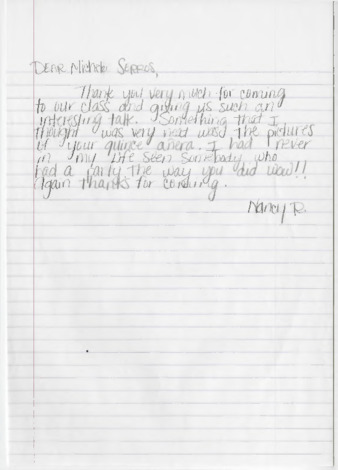 DEAR Michele Serros,
Thank you very much for coming
to our class and giving us such an
interesting talk. Something that I
thought was very neat wasd the pictures
of your quince añera. I had never
in my life seen somebody who
had a party the way you did wow!!
Again thanks for coming.
Nancy R.